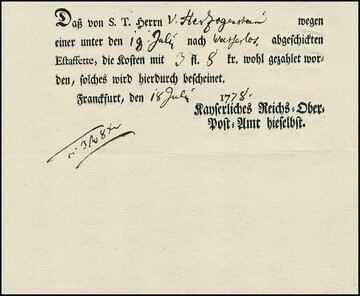 Daß von S. T. Herrn v. Herzogenstein wegen
einer unter den 19 July nach abgeschickten
Estaffette, die Kosten mit 3 fl. 8 kr. wohl gezahlet wor-
den, solches wird hierdurch bescheinet.
Franckfurt, den 18 July 1778.
Kayserliches Reichs-Ober-
Post-Amt hieselbst.
3 fl 8 xr